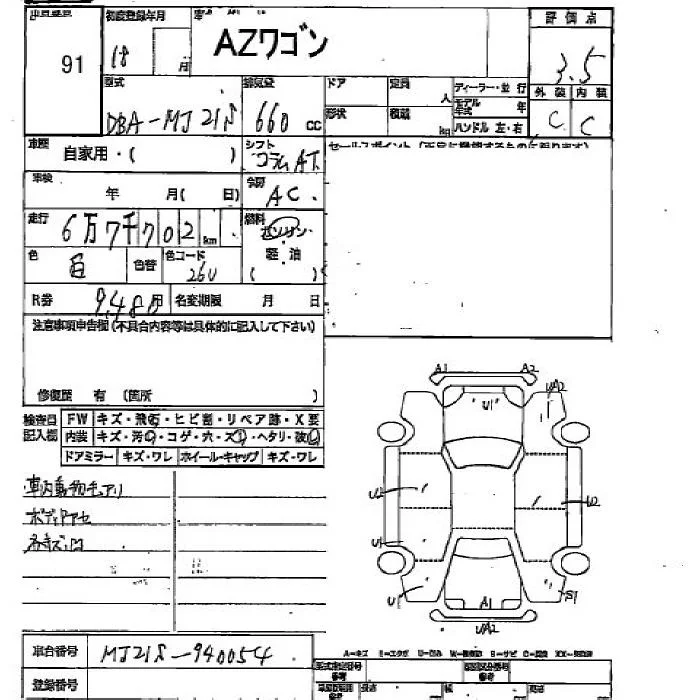 91
初度登録年月
18
月
AZワゴン
評価点
3.5
外装 内装
C C
型式
DBA-MJ21S
排気量
660 CC
ドア
定員
人
形状
積載
kg
ディーラー・並行
モデル年式 年
ハンドル 左・右
車歴
自家用・( )
シフト
コラムAT
車検
年 月( 日)
冷房
AC
走行
6万7千702km
燃料
ガソリン
軽油
( )
色
白
色替
色コード
26U
R券
9,480円
名変期限 月 日
注意事項申告欄(不具合内容等は具体的に記入して下さい)
修復歴 有 (箇所 )
検査員記入欄
FW キズ・飛石・ヒビ割・リペア跡・X要
内装 キズ・汚・コゲ・穴・ズレ・ヘタリ・破
ドアミラー キズ・ワレ ホイール・キャップ キズ・ワレ
車内動物毛アリ
A1 A2
U1
UA2
U2
U2
U1
U1
S1
A1
UA2
車台番号
MJ21S-940054
登録番号